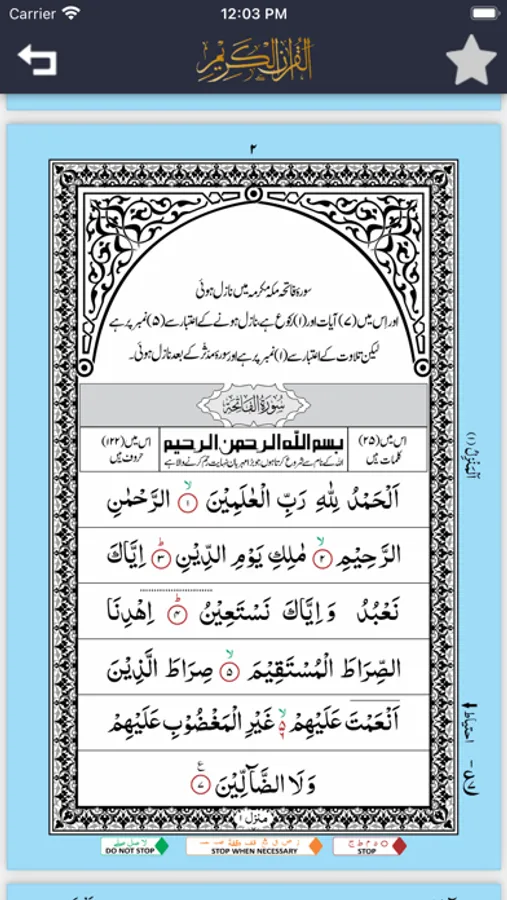 Carrier 12:03 PM
القرآن الكريم
٢
سورۂ فاتحہ مکہ مکرمہ میں نازل ہوئی
اور اس میں (٧) آیات اور (١) رکوع ہے، نازل ہونے کے اعتبار سے (۵) نمبر پر ہے
لیکن تلاوت کے اعتبار سے (١) نمبر پر ہے اور سورۂ مدثر کے بعد نازل ہوئی۔
سُوْرَةُ الْفَاتِحَةِ
اس میں (٢۵) بسم الله الرحمن الرحيم اس میں (١٢٢)
کلمات ہیں اللہ کے نام سے شروع کرتا ہوں جو بڑا مہربان نہایت رحم کرنے والا ہے حروف ہیں
اَلْحَمْدُ لِلّٰهِ رَبِّ الْعٰلَمِيْنَ ۙ ١ الرَّحْمٰنِ
الرَّحِيْمِ ۙ ٢ مٰلِكِ يَوْمِ الدِّيْنِ ؕ ٣ اِيَّاكَ
نَعْبُدُ وَاِيَّاكَ نَسْتَعِيْنُ ؕ ۴ اِهْدِنَا
الصِّرَاطَ الْمُسْتَقِيْمَ ۙ ۵ صِرَاطَ الَّذِيْنَ
اَنْعَمْتَ عَلَيْهِمْ ۙ ۵ ٦ غَيْرِ الْمَغْضُوْبِ عَلَيْهِمْ
وَلَا الضَّآلِّيْنَ ع ٧
اَلْمَنْزِلُ (١)
احتیاط
منزل ١
DO NOT STOP
STOP WHEN NECESSARY
STOP